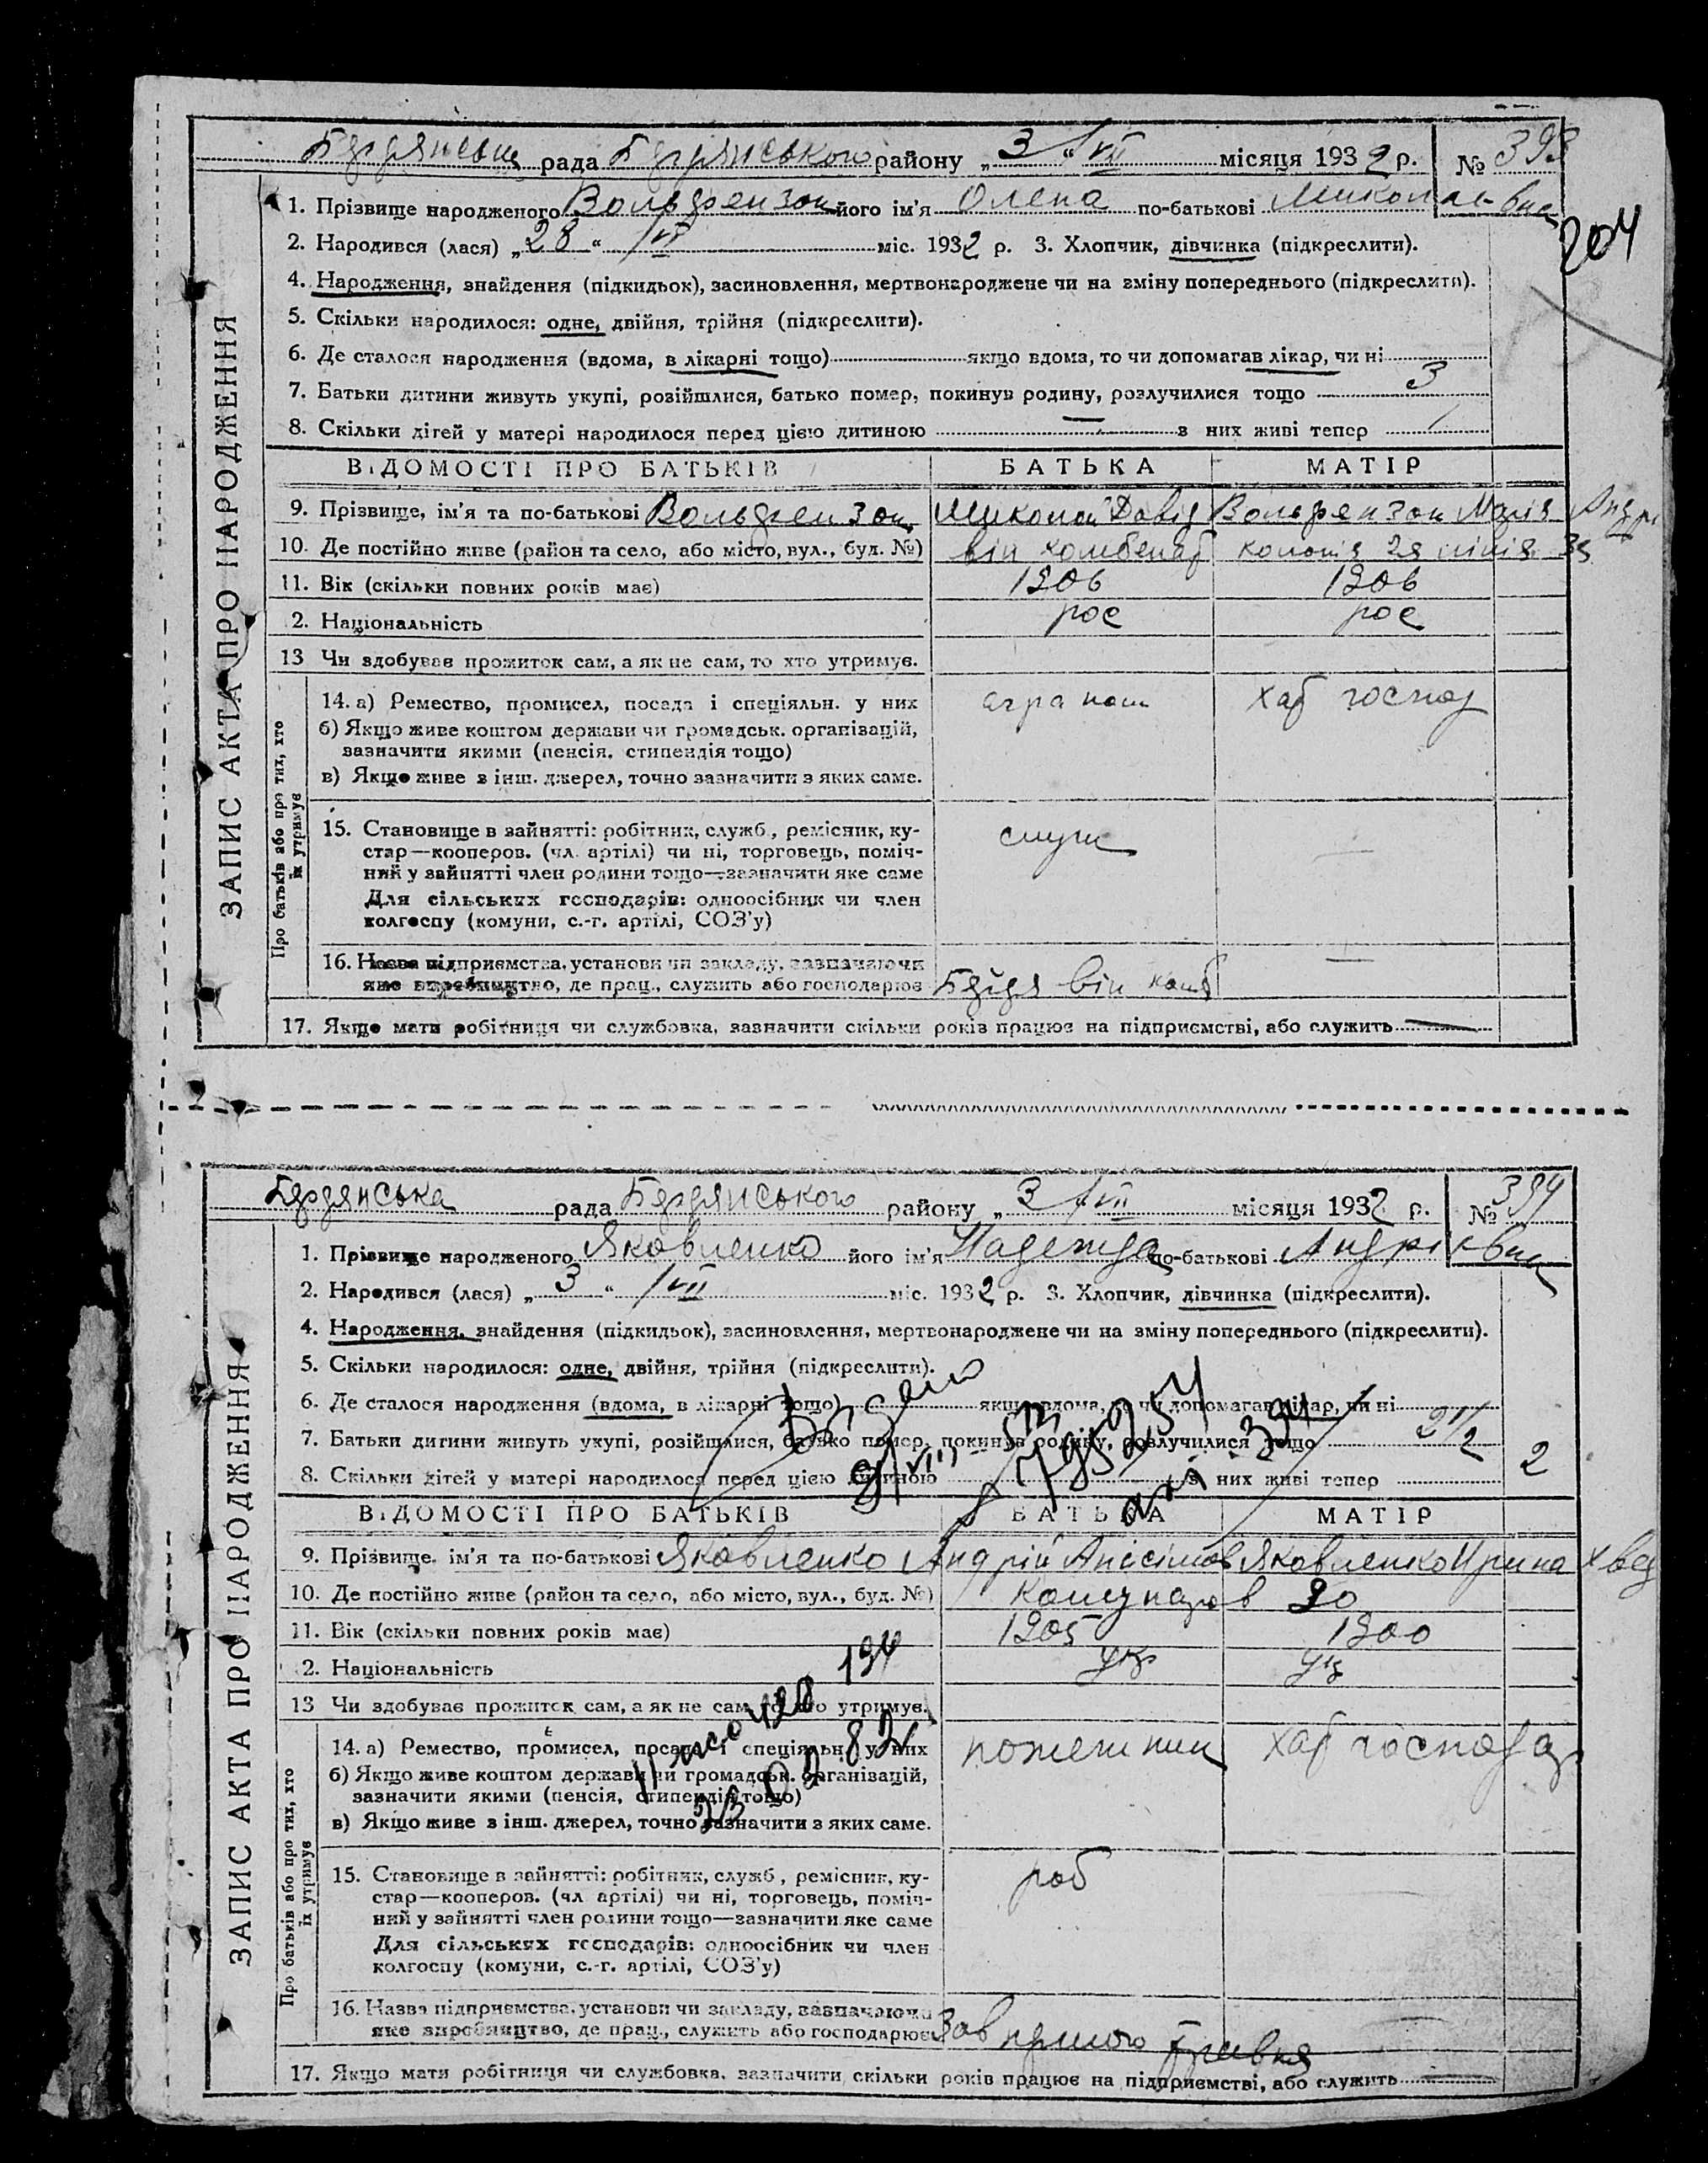 Бердянська рада Бердянського району „3“ /VII місяця 1932 р. № 393
1. Прізвище народженого Вольфензон його ім'я Олена по-батькові Миколаївна
204
2. Народився (лася) „28“ /VI міс. 1932 р. 3. Хлопчик, дівчинка (підкреслити).
4. Народження, знайдення (підкидьок), засиновлення, мертвонароджене чи на зміну попереднього (підкреслити).
5. Скільки народилося: одне, двійня, трійня (підкреслити).
6. Де сталося народження (вдома, в лікарні тощо) якщо вдома, то чи допомагав лікар, чи ні
7. Батьки дитини живуть укупі, розійшлися, батько помер, покинув родину, розлучилися тощо 3
8. Скільки дітей у матері народилося перед цією дитиною — з них живі тепер
ВІДОМОСТІ ПРО БАТЬКІВ БАТЬКА МАТІР
9. Прізвище, ім'я та по-батькові Вольфензон Микола Давід Вольфензон Марія Андрі
10. Де постійно живе (район та село, або місто, вул., буд. №) він комбінат колонія 2я лінія 35
11. Вік (скільки повних років має) 1906 1906
2. Національність рос рос
13 Чи здобуває прожиток сам, а як не сам, то хто утримує.
14. а) Ремество, промисел, посада і спеціяльн. у них агроном хат господ
б) Якщо живе коштом держави чи громадськ. організацій,
зазначити якими (пенсія, стипендія тощо)
в) Якщо живе з інш. джерел, точно зазначити з яких саме.
15. Становище в зайнятті: робітник, служб., ремісник, ку-
стар—кооперов. (чл. артілі) чи ні, торговець, поміч-
ний у зайнятті член родини тощо—зазначити яке саме
служ —
Для сільських господарів: одноосібник чи член
колгоспу (комуни, с.-г. артілі, СОЗ'у)
16. Назва підприємства, установи чи закладу, зазначаючи
яке виробництво, де прац., служить або господарює Бердя він комб —
17. Якщо мати робітниця чи службовка, зазначити скільки років працює на підприємстві, або служить —
ЗАПИС АКТА ПРО НАРОДЖЕННЯ
Про батьків або про тих, хто
їх утримує
Бердянська рада Бердянського району „3 /VII місяця 1932 р. № 394
1. Прізвище народженого Яковленко його ім'я Надежда по-батькові Андріївна
2. Народився (лася) „3“ /VII міс. 1932 р. 3. Хлопчик, дівчинка (підкреслити).
4. Народження, знайдення (підкидьок), засиновлення, мертвонароджене чи на зміну попереднього (підкреслити).
5. Скільки народилося: одне, двійня, трійня (підкреслити).
6. Де сталося народження (вдома, в лікарні тощо) якщо вдома, то чи допомагав лікар, чи ні
7. Батьки дитини живуть укупі, розійшлися, батько помер, покинув родину, розлучилися тощо 2
8. Скільки дітей у матері народилося перед цією дитиною з них живі тепер 2
ВІДОМОСТІ ПРО БАТЬКІВ БАТЬКА МАТІР
9. Прізвище, ім'я та по-батькові Яковленко Андрій Анісімов Яковленко Ірина Хвед
10. Де постійно живе (район та село, або місто, вул., буд. №) Комунарів 20
11. Вік (скільки повних років має) 1905 1900
2. Національність укр укр
13 Чи здобуває прожиток сам, а як не сам, то хто утримує.
14. а) Ремество, промисел, посада і спеціяльн. у них пожежник хат господар
б) Якщо живе коштом держави чи громадськ. організацій,
зазначити якими (пенсія, стипендія тощо)
в) Якщо живе з інш. джерел, точно зазначити з яких саме.
15. Становище в зайнятті: робітник, служб., ремісник, ку-
стар—кооперов. (чл артілі) чи ні, торговець, поміч-
ний у зайнятті член родини тощо—зазначити яке саме
роб
Для сільських господарів: одноосібник чи член
колгоспу (комуни, с.-г. артілі, СОЗ'у)
16. Назва підприємства, установи чи закладу, зазначаючи
яке виробництво, де прац., служить або господарює Зав першого Травня
17. Якщо мати робітниця чи службовка, зазначити скільки років працює на підприємстві, або служить —
ЗАПИС АКТА ПРО НАРОДЖЕННЯ
Про батьків або про тих, хто
їх утримує